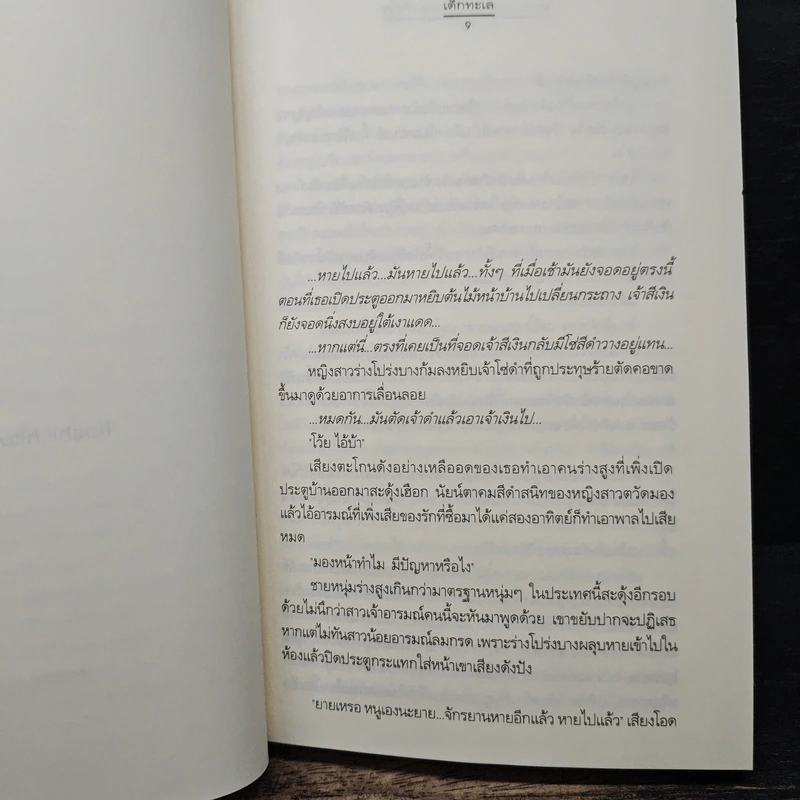 เด็กทะเล
๑
...หายไปแล้ว...มันหายไปแล้ว...ทั้งๆ ที่เมื่อเช้ามันยังจอดอยู่ตรงนี้
ตอนที่เธอเปิดประตูออกมาหยิบต้นไม้หน้าบ้านไปเปลี่ยนกระถาง เจ้าสีเงิน
ก็ยังจอดนิ่งสงบอยู่ใต้เงาแดด...
...หากแต่นี่...ตรงที่เคยเป็นที่จอดเจ้าสีเงินกลับมีโซ่สีดำวางอยู่แทน...
หญิงสาวร่างโปร่งบางก้มลงหยิบเจ้าโซ่ดำที่ถูกประทุษร้ายตัดคอขาด
ขึ้นมาดูด้วยอาการเลื่อนลอย
...หมดกัน...มันตัดเจ้าดำแล้วเอาเจ้าเงินไป...
"โว้ย ไอ้บ้า"
เสียงตะโกนดังอย่างเหลืออดของเธอทำเอาคนร่างสูงที่เพิ่งเปิด
ประตูบ้านออกมาสะดุ้งเฮือก นัยน์ตาคมสีดำสนิทของหญิงสาวตวัดมอง
แล้วไอ้อารมณ์ที่เพิ่งเสียของรักที่ซื้อมาได้แค่สองอาทิตย์ก็ทำเอาพาลไปเสีย
หมด
"มองหน้าทำไม มีปัญหาหรือไง"
ชายหนุ่มร่างสูงเกินกว่ามาตรฐานหนุ่มๆ ในประเทศนี้สะดุ้งอีกรอบ
ด้วยไม่นึกว่าสาวเจ้าอารมณ์คนนี้จะหันมาพูดด้วย เขาขยับปากจะปฏิเสธ
หากแต่ไม่ทันสาวน้อยอารมณ์ลมกรด เพราะร่างโปร่งบางผลุบหายเข้าไปใน
ห้องแล้วปิดประตูกระแทกใส่หน้าเขาเสียงดังปัง
"ยายเหรอ หนูเองนะยาย...จักรยานหายอีกแล้ว หายไปแล้ว" เสียงโอด